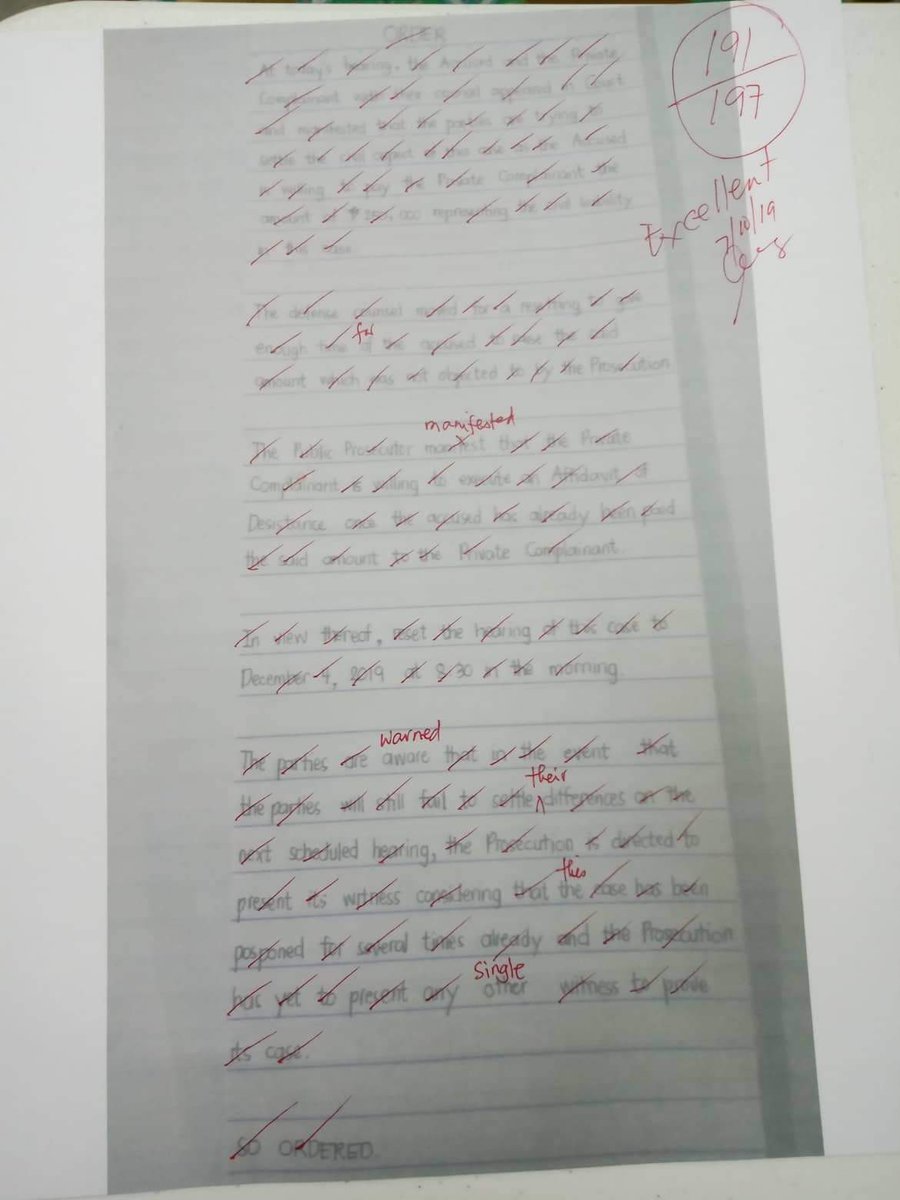 ORDER
At today's hearing, the Accused and the Private
Complainant with their counsel appeared in Court
and manifested that the parties are trying to
settle the civil aspect of this case as the Accused
is willing to pay the Private Complainant the
amount of representing the civil liability
in this case.
The defense counsel moved for a resetting to give
for
enough time of the accused to raise the said
amount which was not objected to by the Prosecution
manifested
The Public Prosecutor manifest that the Private
Complainant is willing to execute an Affidavit of
Desistance once the accused has already been paid
the said amount to the Private Complainant.
In view thereof, reset the hearing of this case to
December 4, 2019 at 8:30 in the morning.
warned
The parties are aware that in the event that
their
the parties will still fail to settle ^ differences on the
next scheduled hearing, the Prosecution is directed to
this
present its witness considering that the case has been
posponed for several times already and the Prosecution
single
has yet to present any other witness to prove
its case.
SO ORDERED.
191
197
Excellent
/10/19